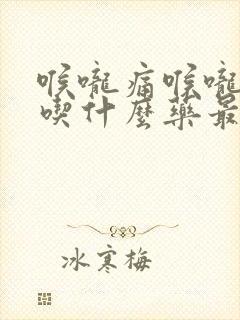 喉嚨痛喉嚨
喫什麼藥最
冰寒梅